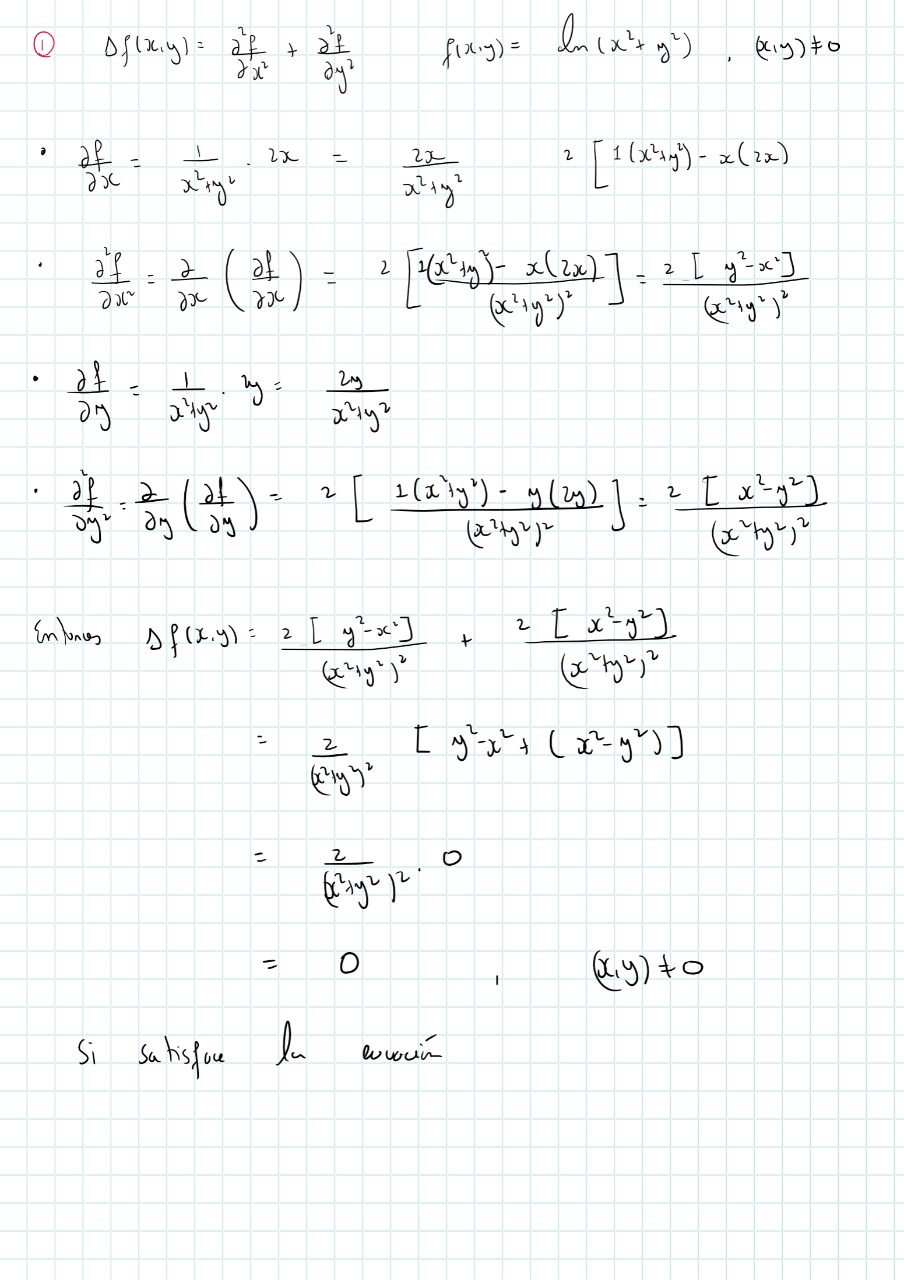 ① Δf(x,y) = ∂²f/∂x² + ∂²f/∂y² f(x,y) = ln(x²+y²) , (x,y)≠0
• ∂f/∂x = 1/(x²+y²) · 2x = 2x/(x²+y²) 2[1(x²+y²) - x(2x)
• ∂²f/∂x² = ∂/∂x (∂f/∂x) = 2[(1(x²+y²) - x(2x))/(x²+y²)²] = 2[y²-x²]/(x²+y²)²
• ∂f/∂y = 1/(x²+y²) · 2y = 2y/(x²+y²)
• ∂²f/∂y² = ∂/∂y (∂f/∂y) = 2[(1(x²+y²) - y(2y))/(x²+y²)²] = 2[x²-y²]/(x²+y²)²
Entonces Δf(x,y) = 2[y²-x²]/(x²+y²)² + 2[x²-y²]/(x²+y²)²
= 2/(x²+y²)² [y²-x²+(x²-y²)]
= 2/(x²+y²)² · 0
= 0 , (x,y)≠0
Si satisface la ecuación